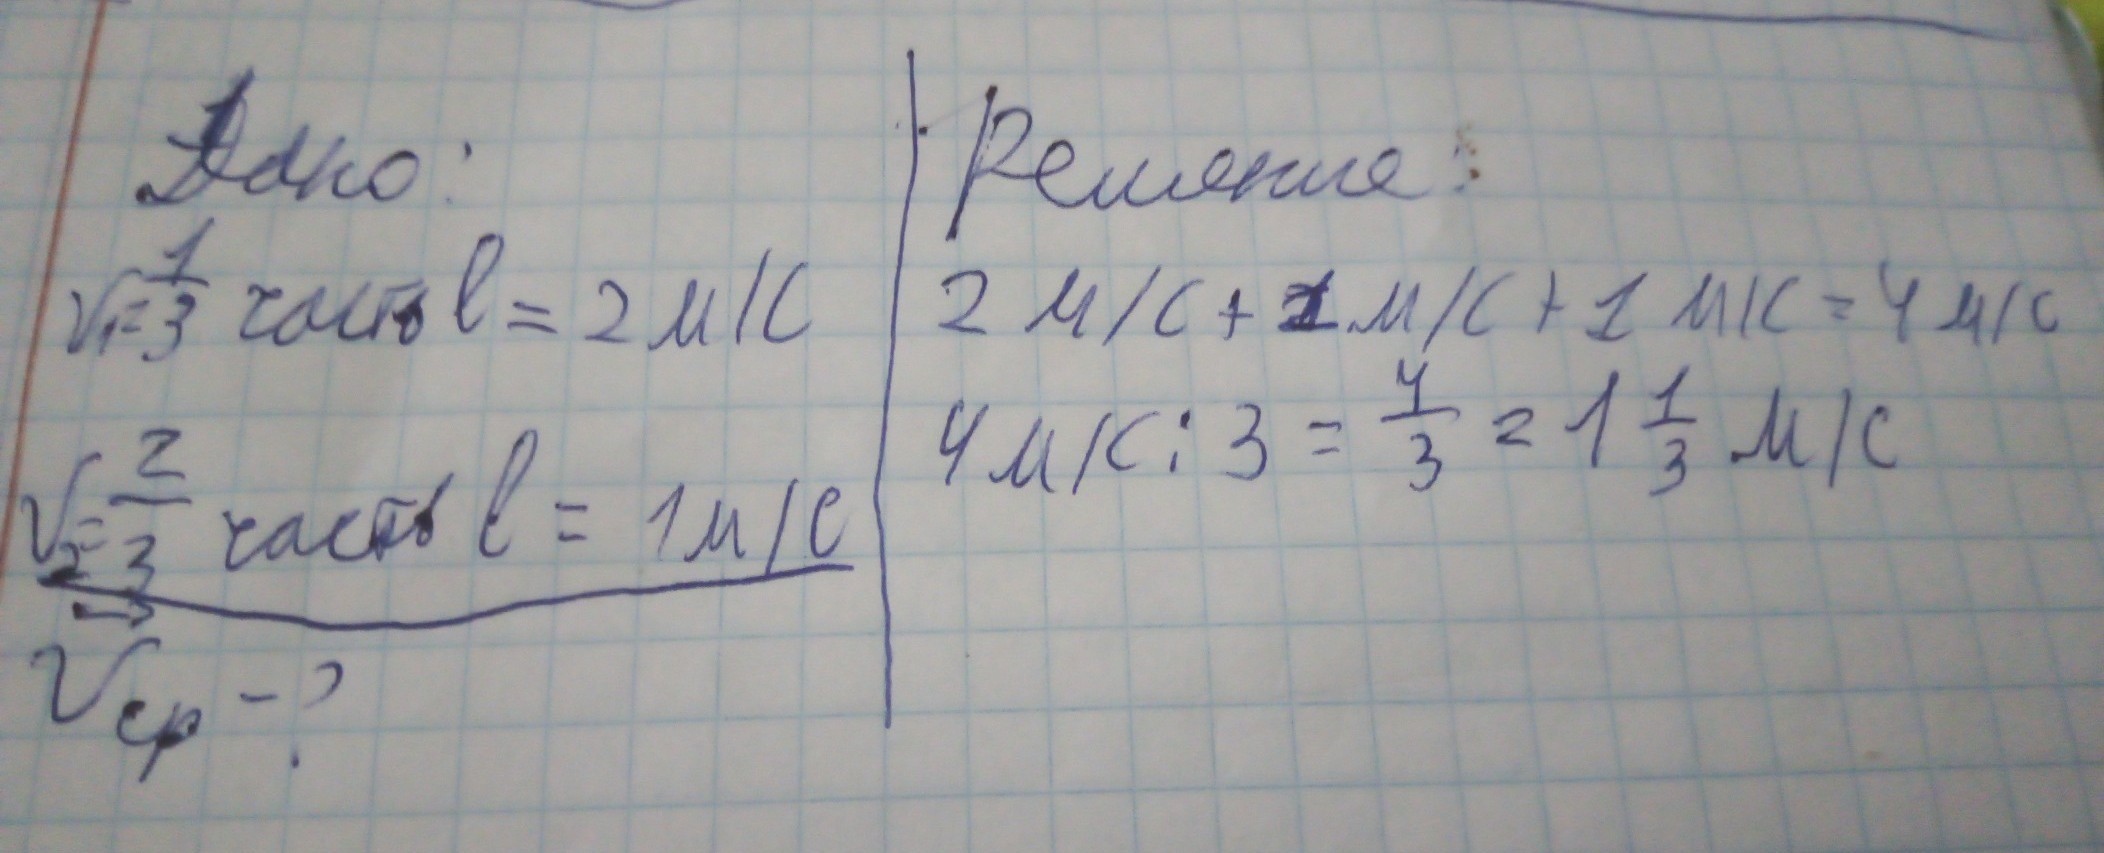 Дано:
V₁ = 1/3 часть l = 2 м/с
V₂ = 2/3 часть l = 1 м/с
V⃗ср - ?
Решение:
2 м/с + 1 м/с + 1 м/с = 4 м/с
4 м/с : 3 = 4/3 = 1 1/3 м/с